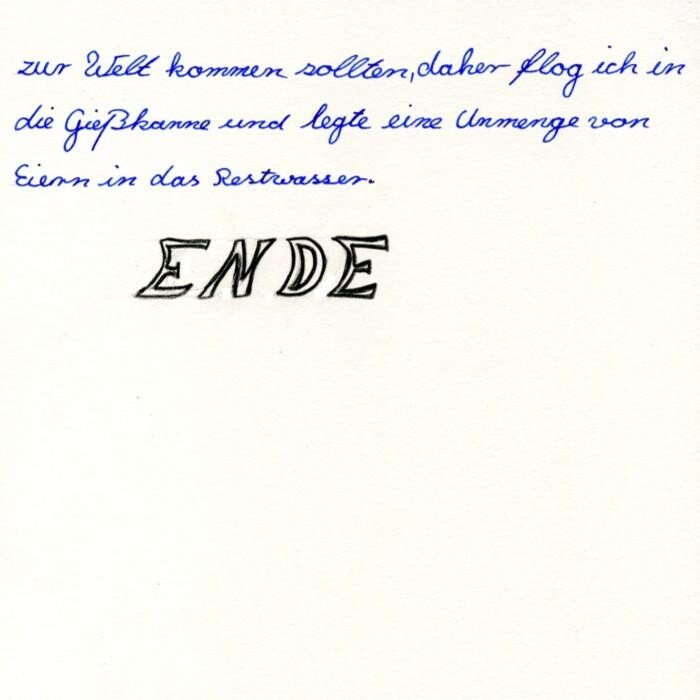 zur Welt kommen sollten, daher flog ich in
die Gießkanne und legte eine Unmenge von
Eiern in das Restwasser.
ENDE